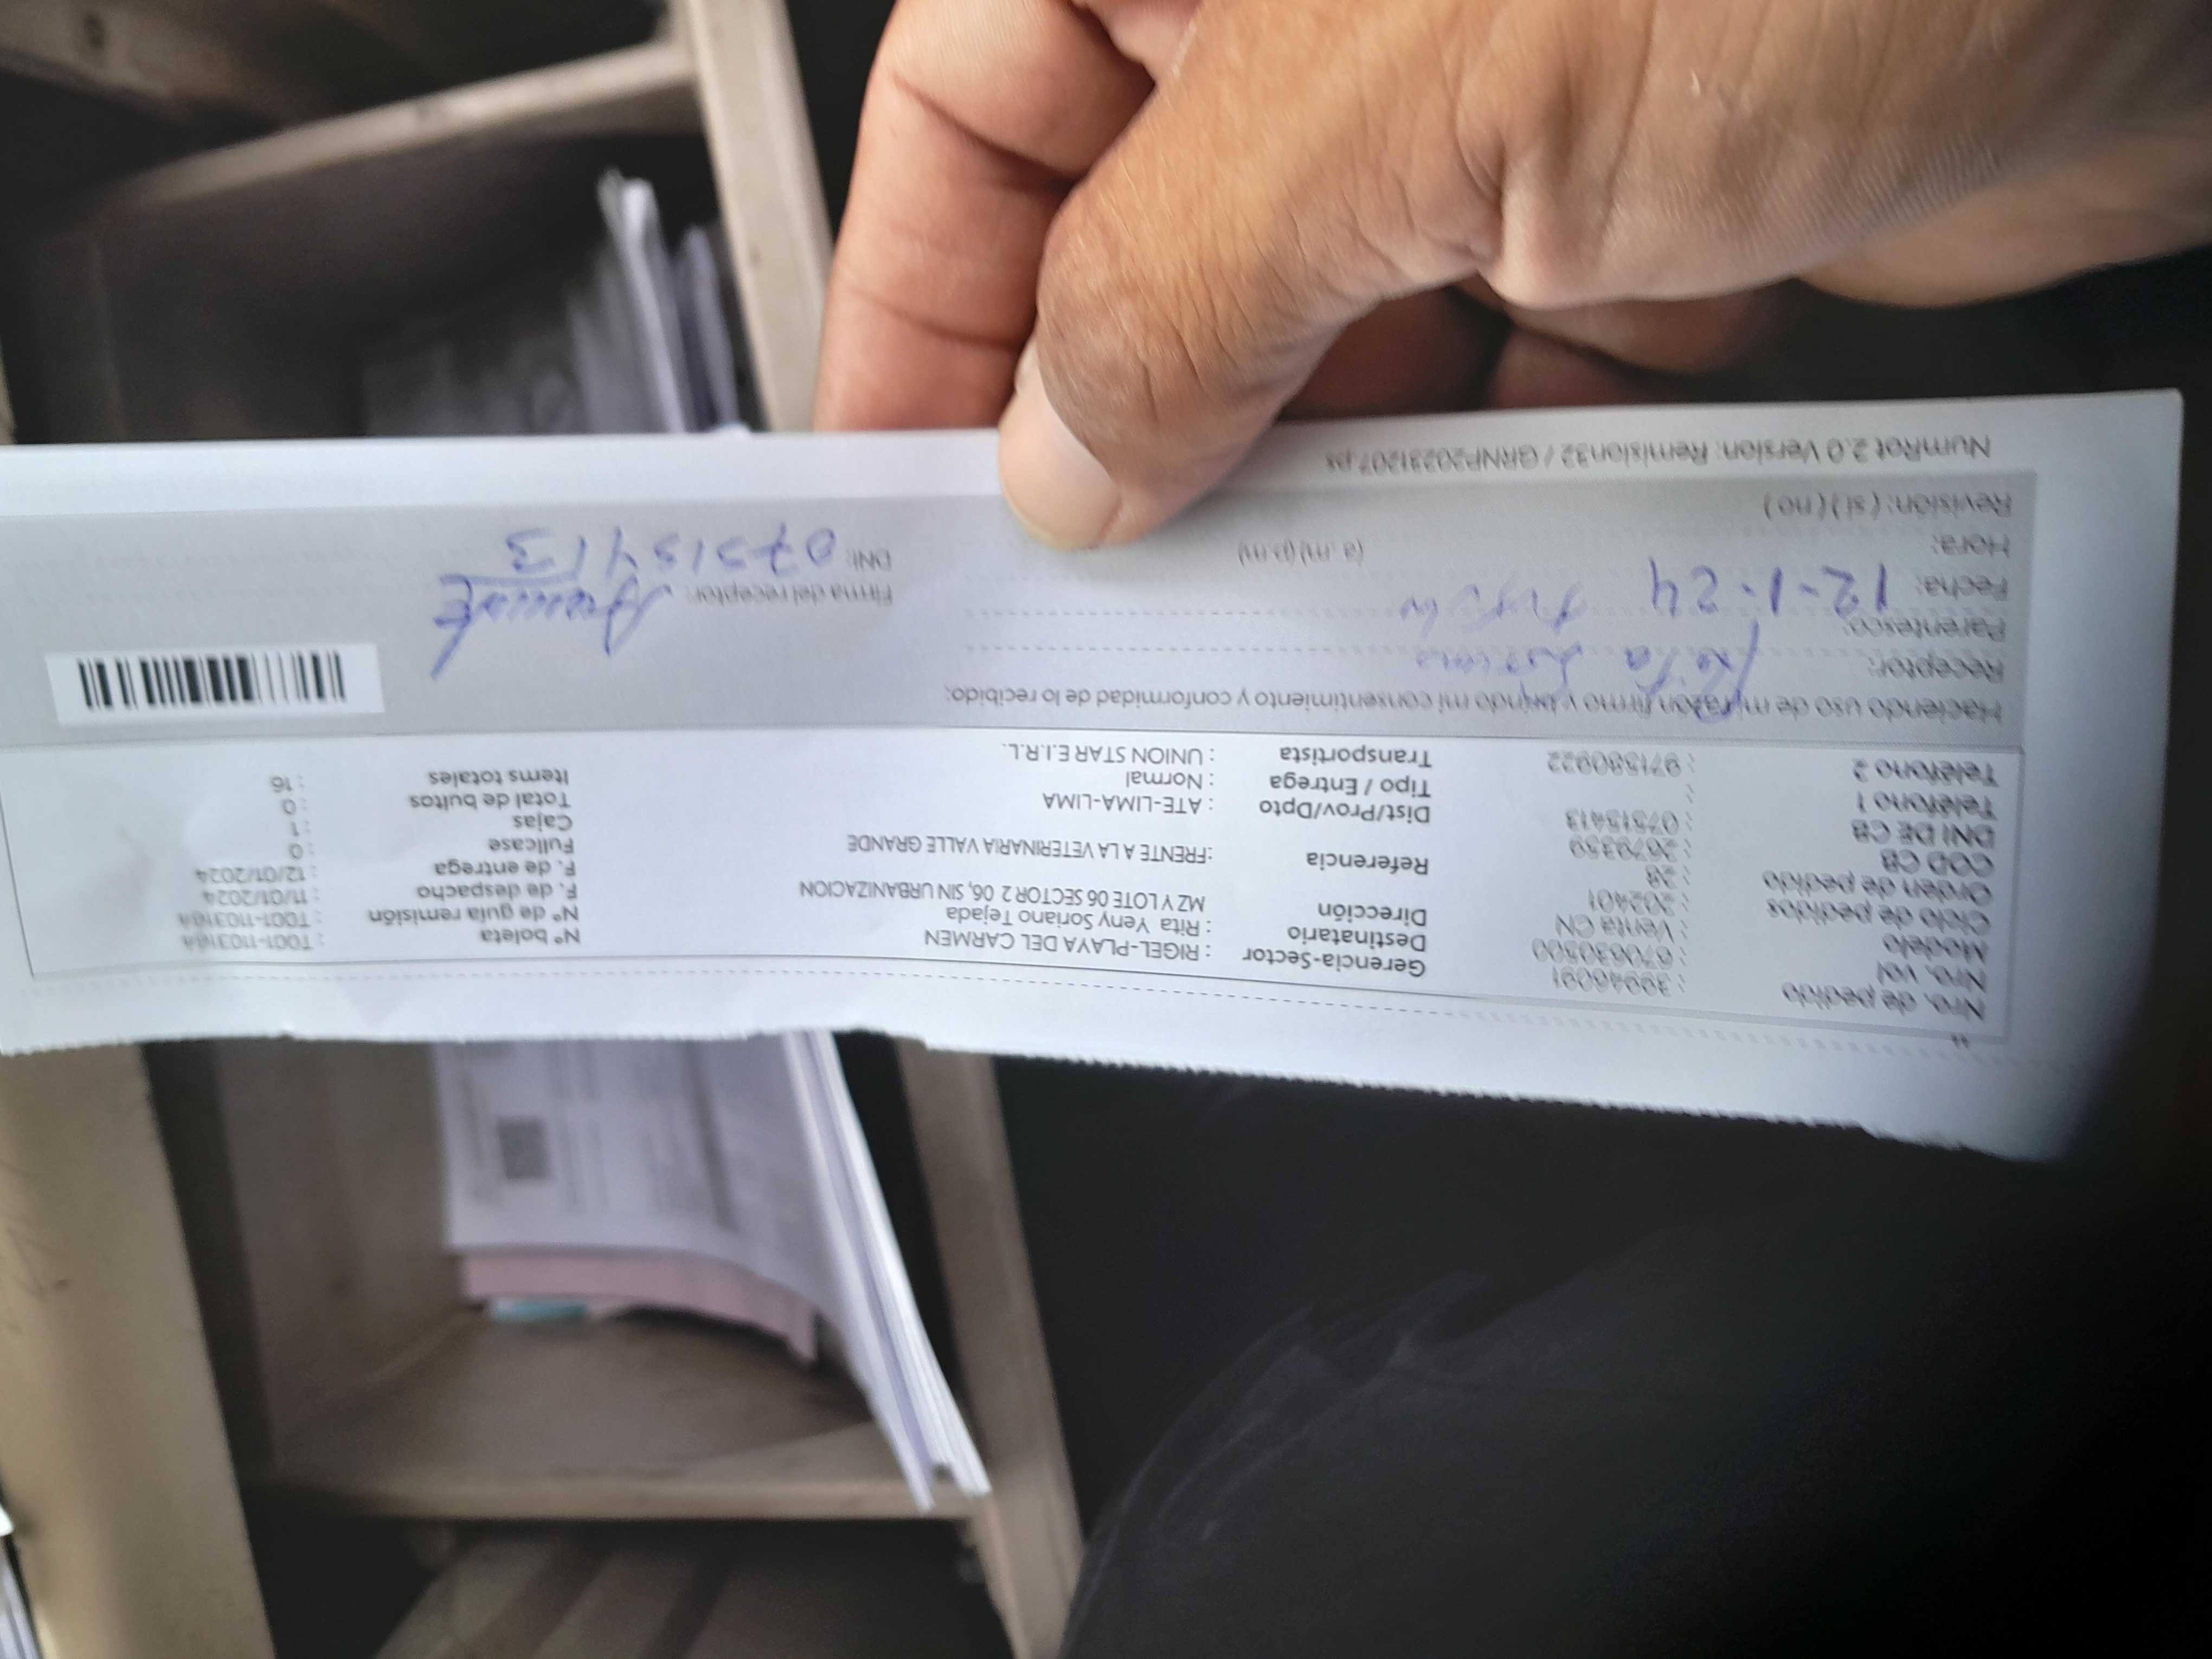 Nro. de pedido : 39946091
Nro. vol : 670630500
Modelo : Venta CN
Ciclo de pedidos : 202401
Orden de pedido : 28
COD CB : 2679339
DNI DE CB : 07515413
Teléfono 1 :
Teléfono 2 : 971580922
Gerencia-Sector : RIGEL-PLAYA DEL CARMEN
Destinatario : Rita Yeny Soriano Tejada
Dirección MZ Y LOTE 06 SECTOR 2 06, SIN URBANIZACION
Referencia :FRENTE A LA VETERINARIA VALLE GRANDE
Dist/Prov/Dpto : ATE-LIMA-LIMA
Tipo / Entrega : Normal
Transportista : UNION STAR E.I.R.L.
N° boleta
N° de guía remisión
F. de despacho : 11/01/2024
F. de entrega : 12/01/2024
Fullcase : 0
Cajas : 1
Total de bultos : 0
Items totales : 16
Haciendo uso de mi razón firmo y brindo mi consentimiento y conformidad de lo recibido:
Receptor: Rita
Parentesco:
Fecha: 12-1-24
Hora: (a. m) (p.m)
Revisión: ( sí ) ( no )
Firma del receptor:
DNI: 07515413
NumRot 2.0 Version: Remision32 / GRNP20231207.ps